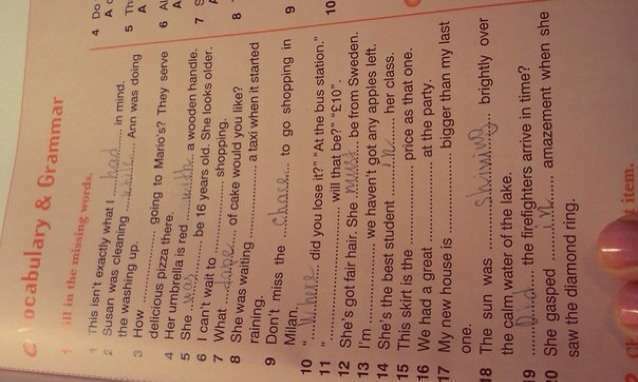 Vocabulary & Grammar
1 Fill in the missing words.
1 This isn't exactly what I ...had... in mind.
2 Susan was cleaning ...while... Ann was doing
the washing up.
3 How ............ going to Mario's? They serve
delicious pizza there.
4 Her umbrella is red ...with... a wooden handle.
5 She ...was... be 16 years old. She looks older.
6 I can't wait to ............ shopping.
7 What ...type... of cake would you like?
8 She was waiting ............ a taxi when it started
raining.
9 Don't miss the ...chace... to go shopping in
Milan.
10 "...Where... did you lose it?" "At the bus station."
11 "............ will that be?" "£10".
12 She's got fair hair. She ...must... be from Sweden.
13 I'm ............ we haven't got any apples left.
14 She's the best student ...in... her class.
15 This skirt is the ............ price as that one.
16 We had a great ............ at the party.
17 My new house is ............ bigger than my last
one.
18 The sun was ...shinning... brightly over
the calm water of the lake.
19 ...Did... the firefighters arrive in time?
20 She gasped ...in... amazement when she
saw the diamond ring.
4 Do
A
5 Th
A
6 Al
A
7 S
8
9
10
item.